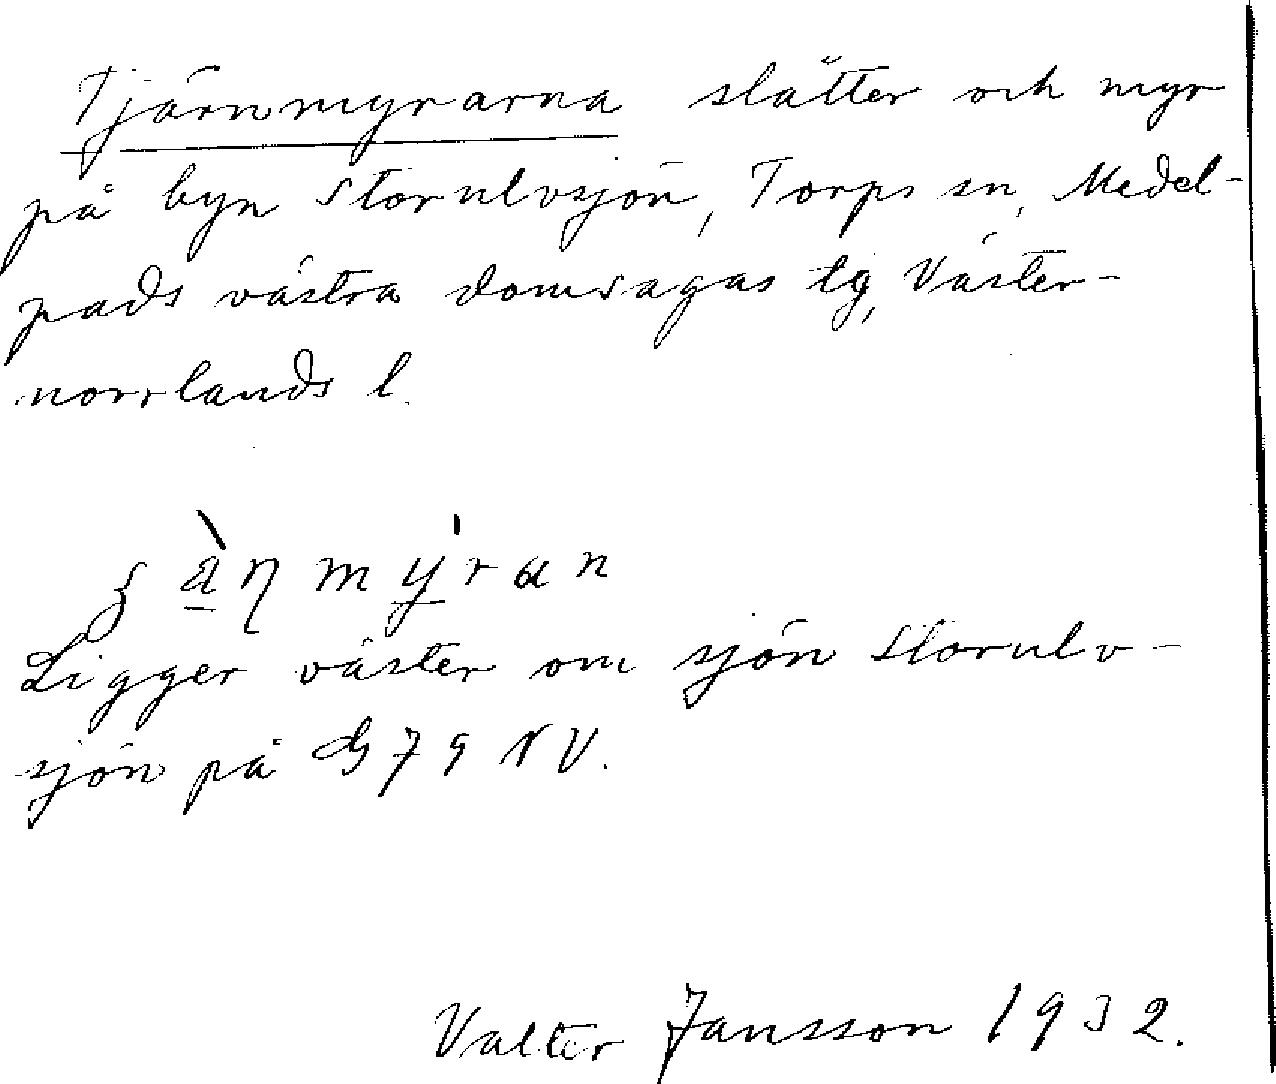 Tjärnmyrarna slåtter och myr
på byn Storulvsjön, Torps sn, Medel-
pads västra domsagas tg, Väster-
norrlands l.
Ligger väster om sjön Storulv-
sjön på G 79 NV.
Valter Jansson 1932.